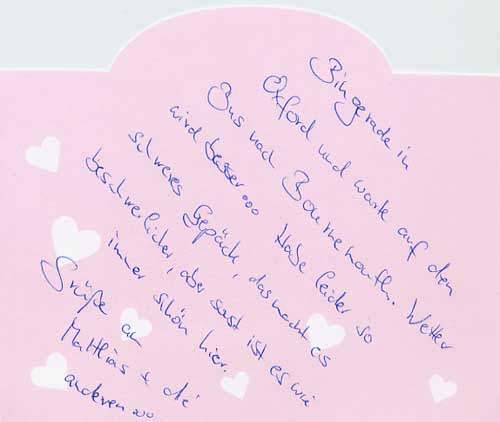 Bin gerade in
Oxford und warte auf den
Bus nach Bournemouth. Wetter
wird besser... Habe leider so
schweres Gepäck, das macht es
beschwerlicher, aber sost ist es wie
immer schön hier.
Grüße an
Matthias + die
anderen...